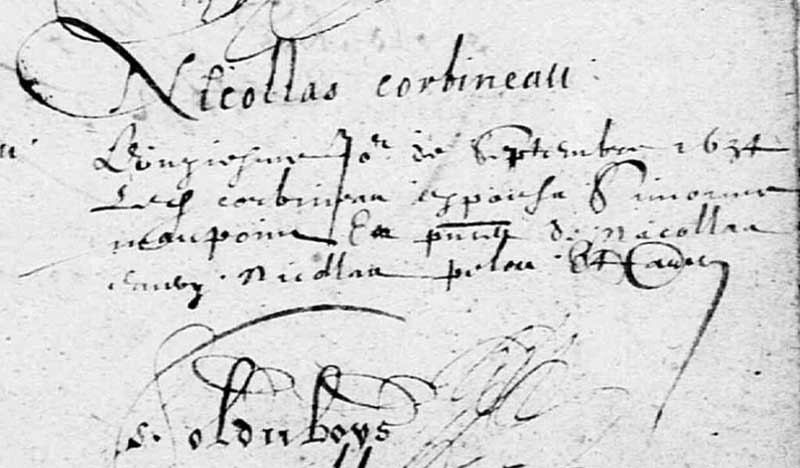 Nicollas corbineau
L'onziesme Jor de Septembre 1634
Led corbineau espousa Simonne
maupoint En pnce de Nicollas
Nicollas pelou Et
olduboys